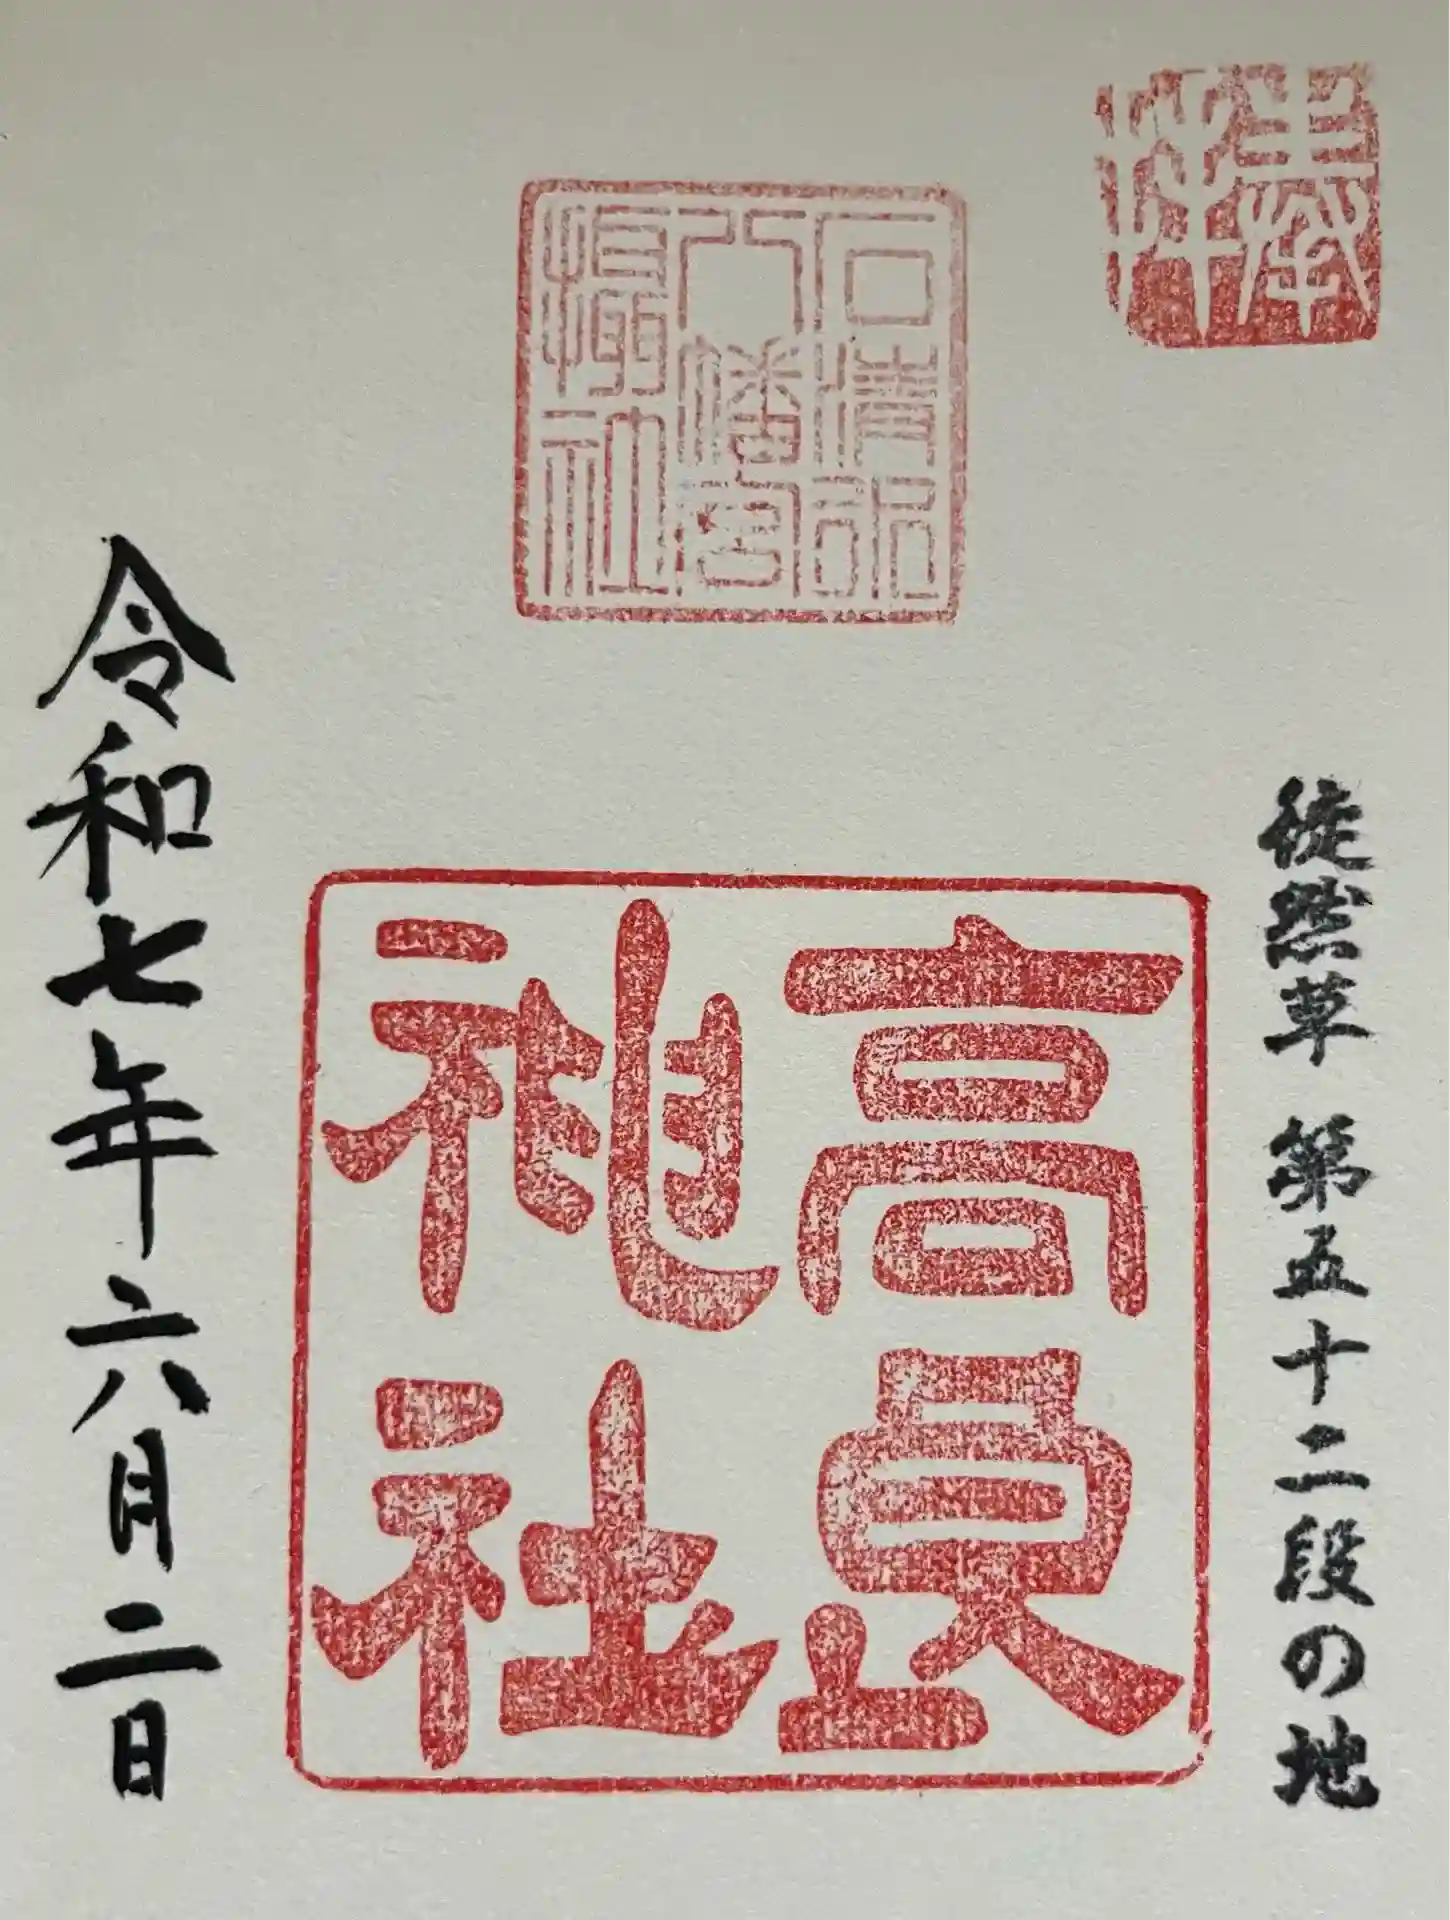 奉拝
徒然草 第五十二段の地
石清水
八幡宮
摂社
高良
神社
令和七年六月二日